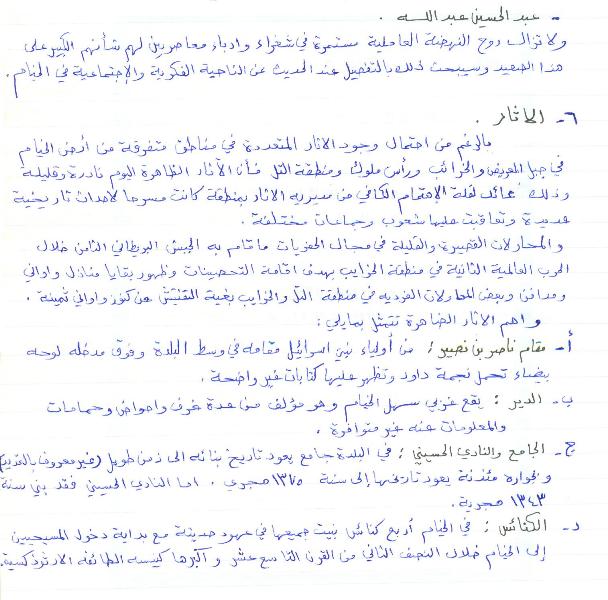 - عبد الحسين عبد الله .
ولا تزال روح النهضة العاملية مستمرة في شعراء وادباء معاصرين لهم شأنهم الكبير على
هذا الصعيد وسيبحث ذلك بالتفصيل عند الحديث عن الناحية الفكرية والإجتماعية في الخيام .
٦- الاثار .
بالرغم من احتمال وجود الاثار المتعددة في مناطق متفرقة من أرض الخيام
في جبل العريض والخرائب ورأس ملوك ومنطقة التل فأن الآثار الظاهرة اليوم نادرة وقليلة
وذلك عائد لقلة الإهتمام الكافي من مديرية الاثار بمنطقة كانت مسرحا لاحداث تاريخية
عديدة وتعاقبت عليها شعوب وجماعات مختلفة .
والمحاولات القصيرة والقليلة في مجال الحفريات ما قام به الجيش البريطاني الثامن خلال
الحرب العالمية الثانية في منطقة الخرايب بهدف اقامة التحصينات وظهور بقايا منازل واواني
ومدافن وبعض المحاولات الفردية في منطقة التل والخرايب بغية التفتيش عن كنوز واواني ثمينة .
واهم الاثار الضاهرة تتمثل بمايلي :
أ- مقام ناصر بن نصير : من أولياء بني اسرائيل مقامه في وسط البلدة وفوق مدخله لوحه
بيضاء تحمل نجمة داود وتظهر عليها كتابات غير واضحة .
ب- الدير : يقع غربي سهل الخيام وهو مؤلف من عدة غرف واحواض وحمامات
والمعلومات عنه غير متوافرة .
ج- الجامع والنادي الحسيني : في البلدة جامع يعود تاريخ بنائه الى زمن طويل (غير معروف بالتحديد)
وبجواره مئذنة يعود تاريخها إلى سنة ١٣٧٥ هجري . اما النادي الحسيني فقد بني سنة
١٣٤٣ هجرية .
د- الكنائس : في الخيام أربع كنائس بنيت جميعها في عهود حديثة مع بداية دخول المسيحيين
إلى الخيام خلال النصف الثاني من القرن التاسع عشر و اكبرها كنيسه الطائفه الارثوذكسية .